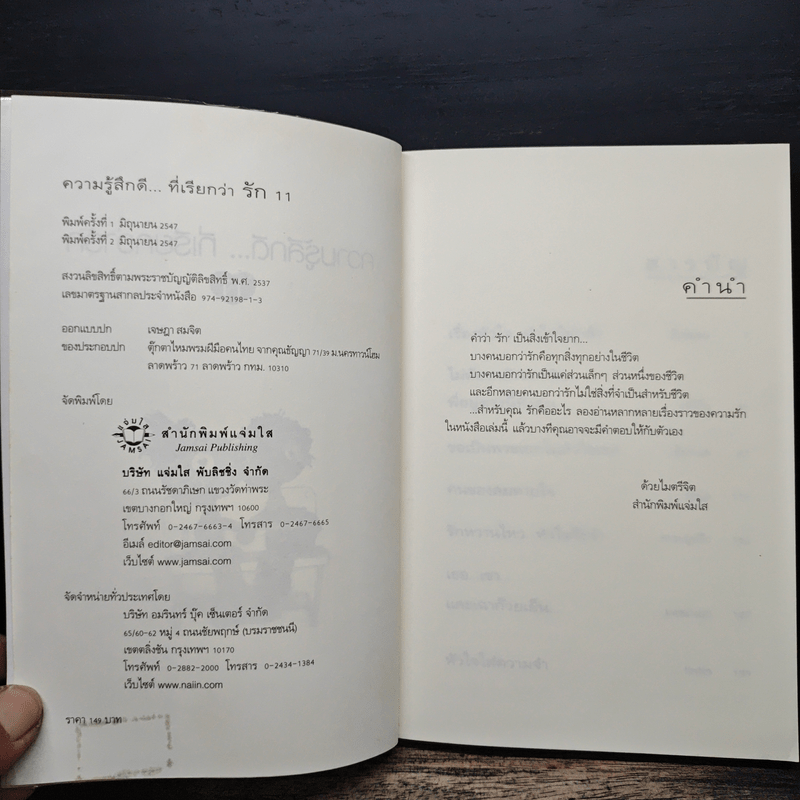 ความรู้สึกดี... ที่เรียกว่า รัก 11
พิมพ์ครั้งที่ 1 มิถุนายน 2547
พิมพ์ครั้งที่ 2 มิถุนายน 2547
สงวนลิขสิทธิ์ตามพระราชบัญญัติลิขสิทธิ์ พ.ศ. 2537
เลขมาตรฐานสากลประจำหนังสือ 974-92198-1-3
ออกแบบปก เจษฎา สมจิต
ของประกอบปก ตุ๊กตาไหมพรมฝีมือคนไทย จากคุณธัญญา 71/39 ม.นครทาวน์โฮม
ลาดพร้าว 71 ลาดพร้าว กทม. 10310
จัดพิมพ์โดย
แจ่มใส
JAMSAI
สำนักพิมพ์แจ่มใส
Jamsai Publishing
บริษัท แจ่มใส พับลิชชิ่ง จำกัด
66/3 ถนนรัชดาภิเษก แขวงวัดท่าพระ
เขตบางกอกใหญ่ กรุงเทพฯ 10600
โทรศัพท์ 0-2467-6663-4 โทรสาร 0-2467-6665
อีเมล์ editor@jamsai.com
เว็บไซต์ www.jamsai.com
จัดจำหน่ายทั่วประเทศโดย
บริษัท อมรินทร์ บุ๊ค เซ็นเตอร์ จำกัด
65/60-62 หมู่ 4 ถนนชัยพฤกษ์ (บรมราชชนนี)
เขตตลิ่งชัน กรุงเทพฯ 10170
โทรศัพท์ 0-2882-2000 โทรสาร 0-2434-1384
เว็บไซต์ www.naiin.com
ราคา 149 บาท
คำนำ
คำว่า 'รัก' เป็นสิ่งเข้าใจยาก...
บางคนบอกว่ารักคือทุกสิ่งทุกอย่างในชีวิต
บางคนบอกว่ารักเป็นแค่ส่วนเล็กๆ ส่วนหนึ่งของชีวิต
และอีกหลายคนบอกว่ารักไม่ใช่สิ่งที่จำเป็นสำหรับชีวิต
...สำหรับคุณ รักคืออะไร ลองอ่านหลากหลายเรื่องราวของความรัก
ในหนังสือเล่มนี้ แล้วบางทีคุณอาจจะมีคำตอบให้กับตัวเอง
ด้วยไมตรีจิต
สำนักพิมพ์แจ่มใส